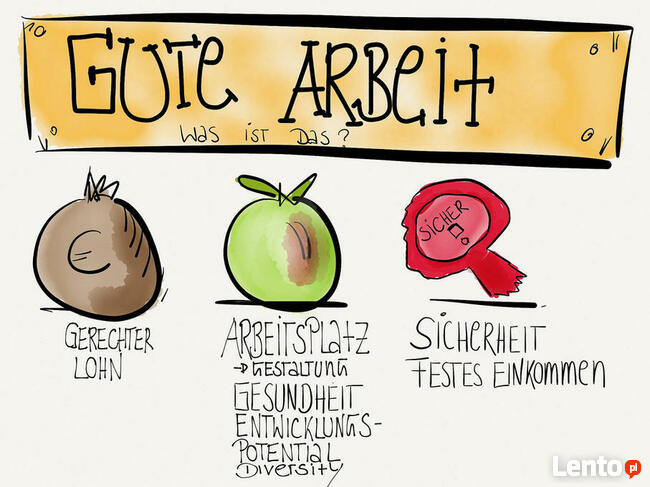 GUTE ARBEIT
WAS IST DAS?
€
SICHER
GERECHTER
LOHN
ARBEITSPLATZ
→ GESTALTUNG
GESUNDHEIT
ENTWICKLUNGS-
POTENTIAL
DIVERSITY
SICHERHEIT
FESTES EINKOMMEN
Lento.pl